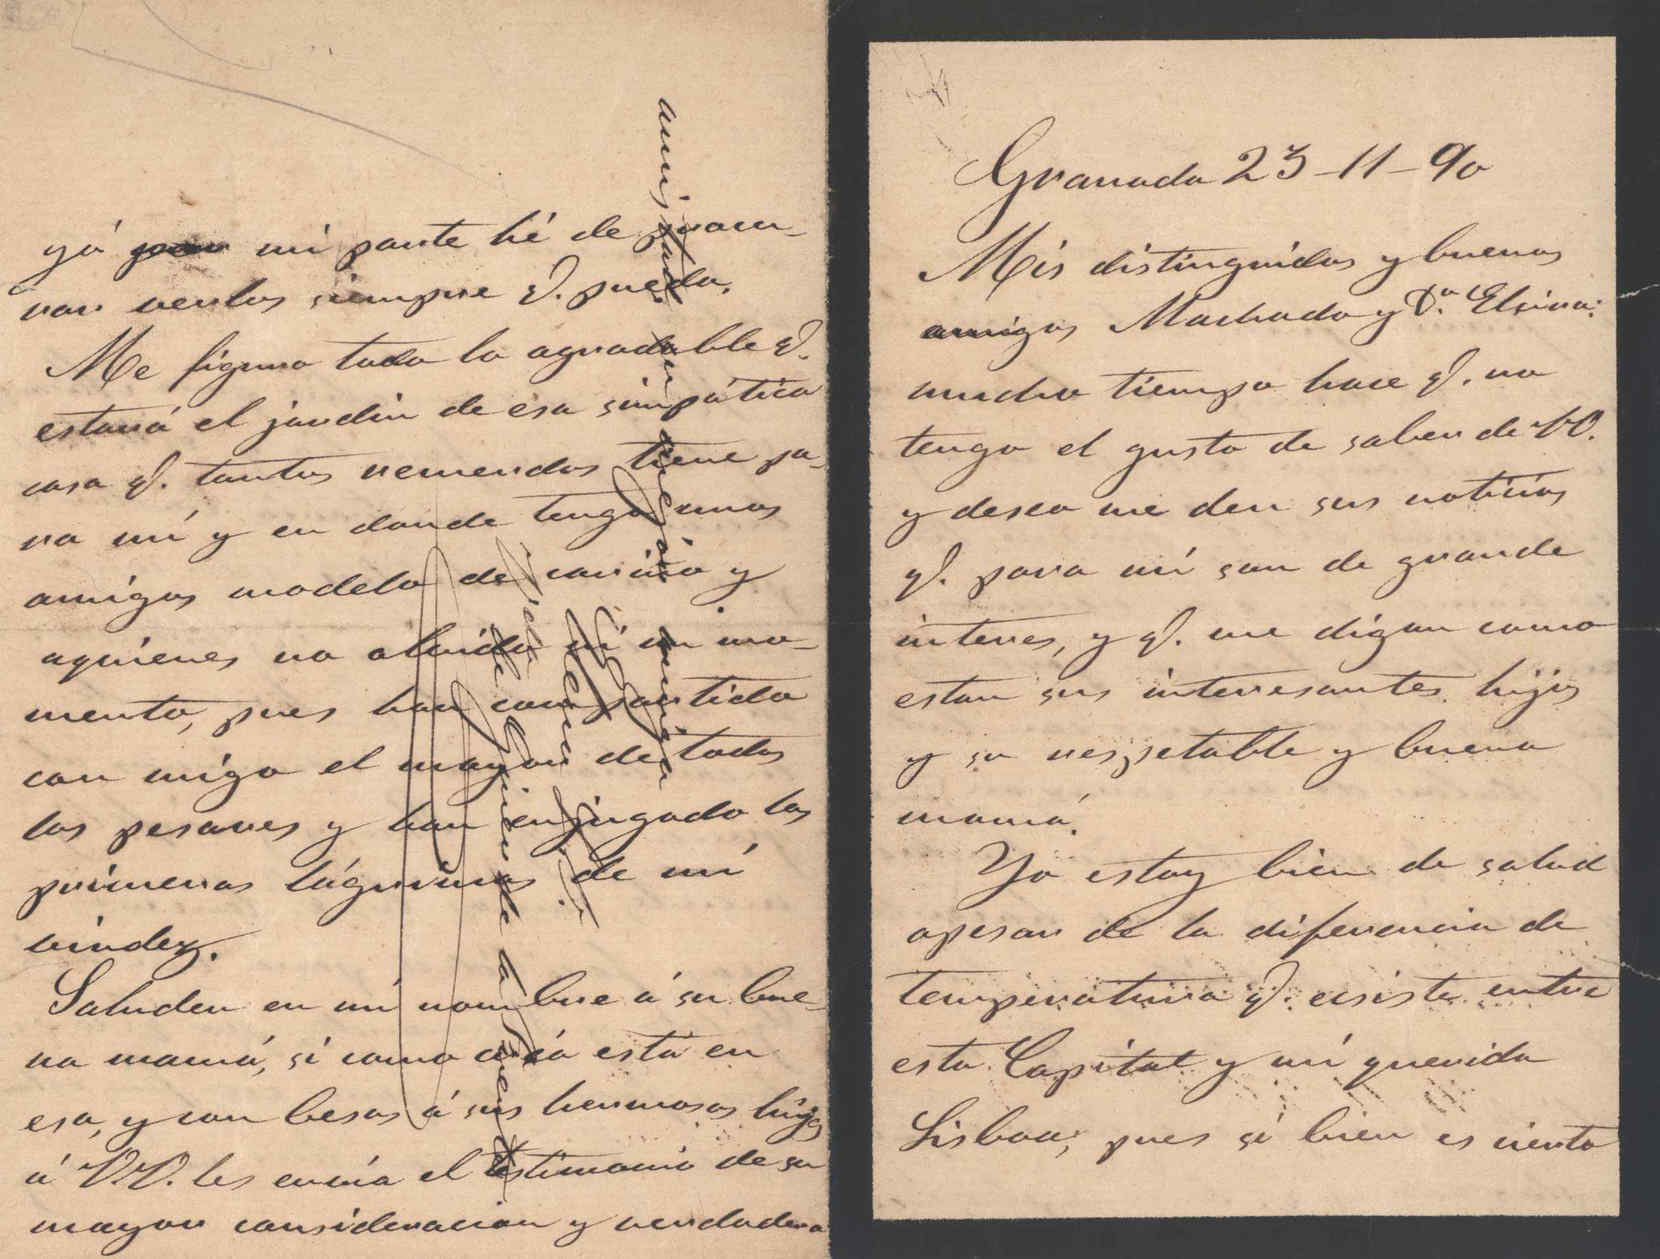 Granada 23-11-90
Mis distinguidos y buenos
amigos Machado y D.ª Elvira:
mucho tiempo hace q. no
tengo el gusto de saber de VV.
y deseo me den sus noticias
q. para mí son de grande
interes, y q. me digan como
estan sus interesantes hijos
y su respetable y buena
mamá.
Yo estoy bien de salud
apesar de la diferencia de
temperatura q. existe entre
esta Capital y mí querida
Lisboa; pues si bien es cierto
yá mi parte hé de procu-
rar verlos siempre q. pueda.
Me figuro todo lo agradable q.
estará el jardin de esa simpática
casa q. tantos recuerdos tiene pa-
ra mí y en donde tengo unos
amigos modelo de cariño y
aquienes no olvido ni un mo-
mento, pues han compartido
con migo el mayor de todos
los pesares y han enjugado las
primeras lágrimas de mí
viudez.
Saluden en mí nombre á su bue-
na mamá, si como creo está en
esa, y con besos á sus hermosos hijos
á VV. les envia el testimonio de su
mayor consideracion y verdadera
amistad su afma.
amiga